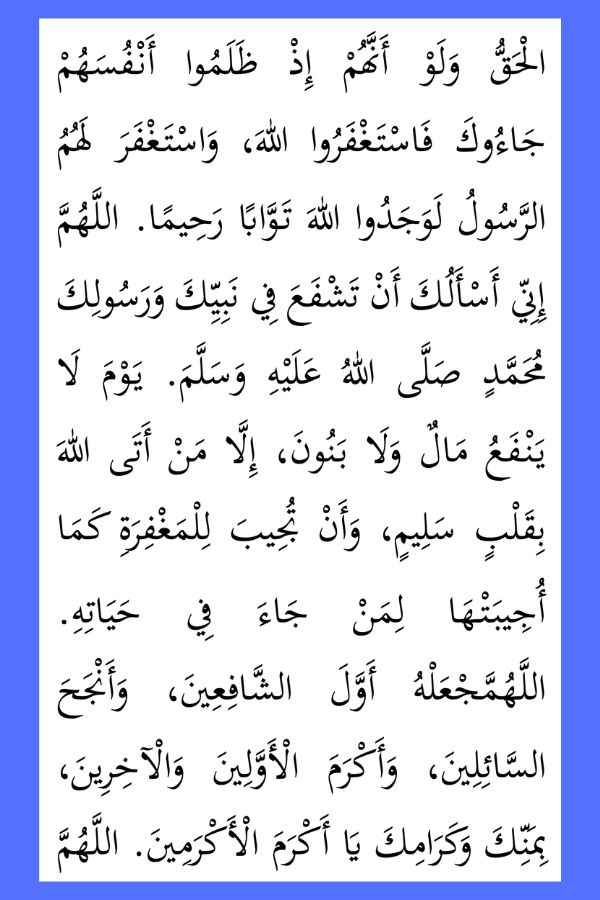 الْحَقُّ وَلَوْ أَنَّهُمْ إِذْ ظَلَمُوا أَنْفُسَهُمْ
جَاءُوكَ فَاسْتَغْفَرُوا اللهَ، وَاسْتَغْفَرَ لَهُمُ
الرَّسُولُ لَوَجَدُوا اللهَ تَوَّابًا رَحِيمًا. اللَّهُمَّ
إِنِّي أَسْأَلُكَ أَنْ تَشْفَعَ فِي نَبِيِّكَ وَرَسُولِكَ
مُحَمَّدٍ صَلَّى اللهُ عَلَيْهِ وَسَلَّمَ. يَوْمَ لَا
يَنْفَعُ مَالٌ وَلَا بَنُونَ، إِلَّا مَنْ أَتَى اللهَ
بِقَلْبٍ سَلِيمٍ، وَأَنْ تُجِيبَ لِلْمَغْفِرَةِ كَمَا
أُجِيبَتْهَا لِمَنْ جَاءَ فِي حَيَاتِهِ.
اللَّهُمَّجْعَلْهُ أَوَّلَ الشَّافِعِينَ، وَأَنْجَحَ
السَّائِلِينَ، وَأَكْرَمَ الْأَوَّلِينَ وَالْآخِرِينَ،
بِمَنِّكَ وَكَرَامِكَ يَا أَكْرَمَ الْأَكْرَمِينَ. اللَّهُمَّ